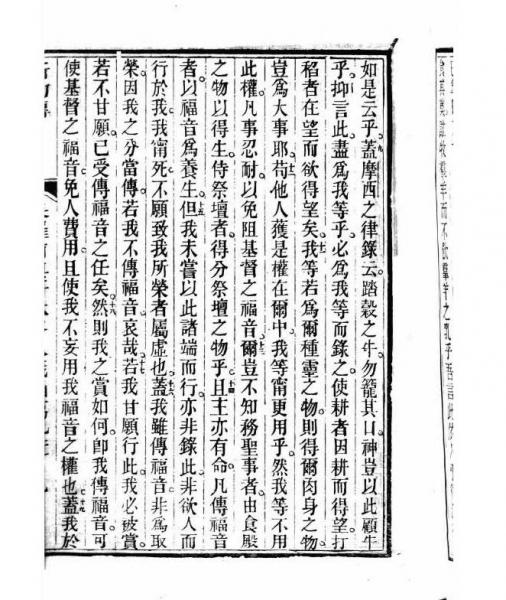 牧羣羊而不飲羣羊之乳乎吾言
如是云乎。蓋摩西之律錄云。踏穀之牛。勿籠其口。神豈以此顧牛
乎。抑言此。盡爲我等乎。必爲我等而錄之。使耕者因耕而得望。打
稻者在望而欲得望矣。我等若爲爾種靈之物。則得爾肉身之物。
豈爲大事耶。苟他人獲是權在爾中。我等甯更用乎。然我等不用
此權。凡事忍耐。以免阻基督之福音。爾豈不知務聖事者。由食殿
之物以得生。侍祭壇者。得分祭壇之物乎。且主亦有命。凡傳福音
者。以福音爲養生。但我未嘗以此諸端而行。亦非錄此。非欲人而
行於我。我甯死不願致我所榮者屬虛也。蓋我雖傳福音。非爲取
榮。因我之分當傳。若我不傳福音。哀哉。若我甘願行此。我必被賞。
若不甘願。已受傳福音之任矣。然則我之賞如何。卽我傳福音。可
使基督之福音。免人費用。且使我不妄用我福音之權也。蓋我於